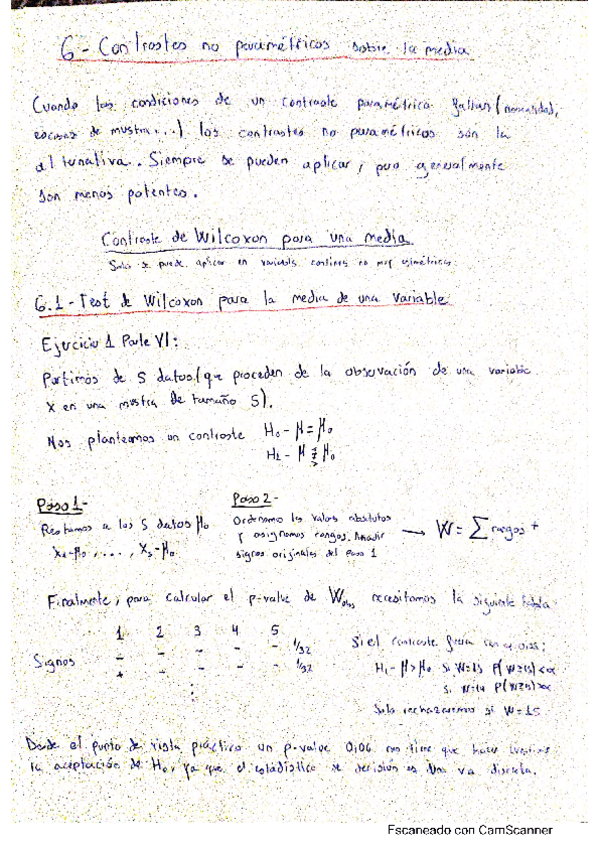 6 - Contrastes no paramétricos sobre la media
Cuando las condiciones de un contraste paramétrico fallan (normalidad,
escasez de muestra...) los contrastes no paramétricos son la
alternativa. Siempre se pueden aplicar, pero generalmente
son menos potentes.
Contraste de Wilcoxon para una media
Solo se puede aplicar en variables continuas no muy asimétricas.
6.1 - Test de Wilcoxon para la media de una variable
Ejercicio 1 Parte VI:
Partimos de 5 datos (que proceden de la observación de una variable
x en una muestra de tamaño 5).
Nos planteamos un contraste H₀ - μ = μ₀
H₁ - μ ≠ μ₀
Paso 1-
Restamos a los 5 datos μ₀
x₁-μ₀, ..., x₅-μ₀
Paso 2-
Ordenamos los valores absolutos
y asignamos rangos. Añadir
signos originales del paso 1
→ W = Σ rangos +
Finalmente, para calcular el p-value de W necesitamos la siguiente tabla
1 2 3 4 5
- - - - - 1/32
Signos
+ - - - - 1/32
⋮
Si el contraste fuera
H₁ - μ > μ₀ si W=15 P(W≥15)<α
si W=14 P(W≥14)>α
Solo rechazaremos si W=15
Desde el punto de vista práctico un p-value 0,06 no tiene que hacer
la aceptación de H₀, ya que el estadístico de decisión es una va discreta.
Escaneado con CamScanner